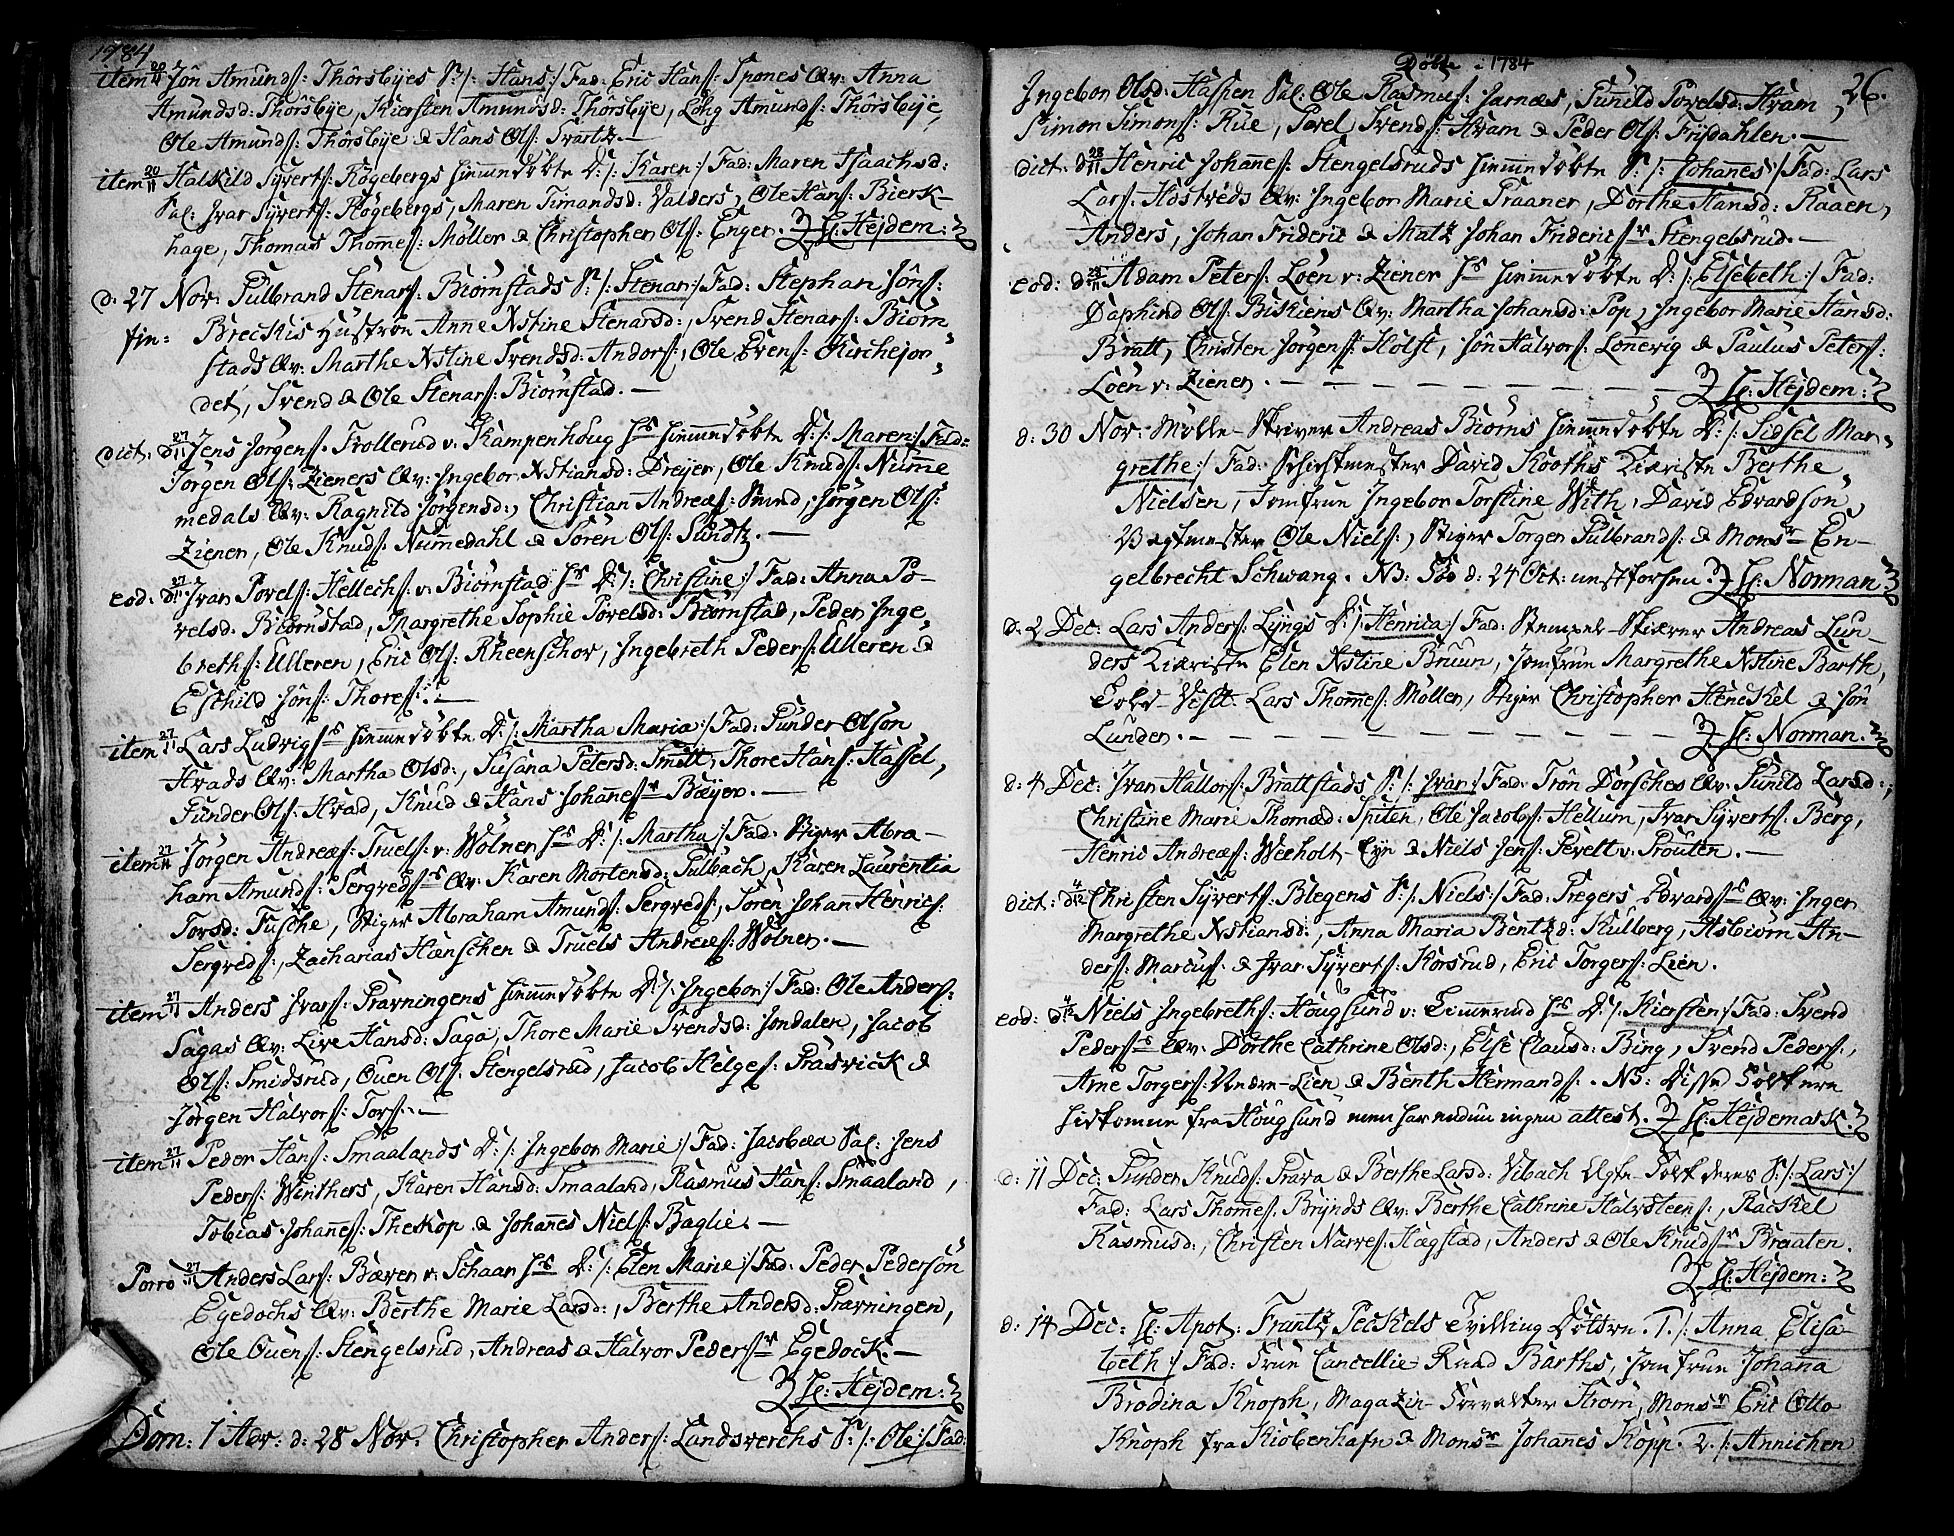 1784
item 20/11 Jôn Amunds: Thôrsbÿes S: /: Hans :/ Fad: Eric Hans: Spones Qv: Anna
Amundsd: Thôrsbÿe, Kiersten Amundsd: Thôrsbÿe, Lang Amunds: Thôrsbÿe,
Ole Amunds: Thôrsbÿe & Hans Ols: Svartz.—
item 20/11 Halkild Syverts: Rögebergs hiemmedöbte D: /: Karen :/ Fad: Maren Isaachsd:
Sal: Ivar Syverts: Rögebergs, Maren Simandsd: Valders, Ole Hans: Bierk-
hage, Thomas Thomes: Möller & Christopher Ols: Enger. H: Hejdem:
d. 27 Nov: Gulbrand Stenars: Biörnstads S: /: Stenar :/ Fad: Stephan Jôns:
Brechis Hustroe Anne Xstine Stenarsd:, Svend Stenars: Biörn-
stads Qv: Marthe Xstine Svendsd: Andors:, Ole Evens: Kirchejor-
det, Svend & Ole Stenars: Biörnstad.—
dict: d 27/11 Jens Jörgens: Trollerud v: Kampenhöug Hs hiemmedöbte D: /: Maren :/ Fad:
Jörgen Ols: Zieners Qv: Ingebor Xstiansd: Dreÿer, Ole Knuds: Numme
medals Qv: Ragnild Jörgensd:, Christian Andreæs: Strand, Jörgen Ols:
Ziener, Ole Knuds: Nummedahl & Sören Ols: Sundtz.—
eod: d 27/11 Ivar Povels: Hellechs: v: Biörnstad Hs D: /: Christine :/ Fad: Anna Po-
velsd: Biörnstad, Margrethe Sophie Povelsd: Biörnstad, Peder Inge-
breths: Ulleren, Eric Ols: Rheenschov, Ingebreth Peders: Ulleren &
Eschild Jôns: Thores:.—
item 27/11 Lars Ludvigs: hiemmedöbte D: /: Martha Maria :/ Fad: Gunder Olsön
Hvads Qv: Martha Olsd:, Susana Petersd: Smitt, Thore Hans: Hassel,
Gunder Ols: Hvad, Knud & Hans Johañes: Bæÿer.—
item 27/11 Jörgen Andreæs: Truels: v: Wölner Hs D: /: Martha :/ Fad: Stiger Abra-
ham Amunds: Sergveds: Qv: Karen Mortensd: Sulbach, Karen Laurentia
Torsd: Fusche, Stiger Abraham Amunds: Sergveds:, Sören Johan Henrics:
Sergveds:, Zacharias Hænschen & Truels Andreæs: Wölner.—
item 27/11 Anders Ivars: Pravningens hiemmedöbte D: /: Ingebor :/ Fad: Ole Anders:
Sagas Qv: Live Hansd: Saga, Thore Marie Svendsd: Jondalen, Jacob
Ols: Smidsrud, Ouen Ols: Stengelsrud, Jacob Helges: Præsvick &
Jörgen Halvors: Tors:.—
item 27/11 Peder Hans: Smaalands D: /: Ingebor Marie :/ Fad: Jacobæa Sal: Jens
Peders: Winthers, Karen Hansd: Smaaland, Rasmus Hans: Smaaland,
Tobias Johañes: Theskop & Johañes Niels: Baglie.—
Porro 27/11 Anders Lars: Bæver v: Schaar Hs D: /: Elen Marie :/ Fad: Peder Pedersön
Egedochs Qv: Berthe Marie Larsd:, Berthe Andersd: Pravningen,
Ole Ouens: Stengelsrud, Andreas & Halvor Peders: Egedock.—
H: Hejdem:
Dom: 1 Adv: d: 28 Nov. Christopher Anders: Landsverchs S: /: Ole :/ Fad:
Döbte 1784
26.
Ingebor Olsd: Haslien Sal: Ole Rasmus: Jarnæs, Gunild Povelsd: Hvam,
Simon Simons: Rue, Povel Svends: Hvam & Peder Ols: Frÿdahlen.—
dict: d 28/11 Henric Johañes: Stengelsruds hiemmedöbte S: /: Johañes :/ Fad: Lars
Lars: Hostveds Qv: Ingebor Marie Praaner, Dorthe Hansd: Raaen,
Anders, Johan Frideric & Matz Johan Frideric: Stengelsrud.—
eod: d 28/11 Adam Peters: Löen v: Ziener Hs hiemmedöbte D: /: Elsebeth :/ Fad:
Daphind Ols: Biskiens Qv: Martha Johansd: Pop, Ingebor Marie Hansd:
Bratt, Christen Jörgens: Holst, Jôn Halvors: Loñevig & Paulus Peters:
Löen v: Ziener.— H: Hejdem:
d: 30 Nov: Mölle-Skriver Andreas Biörns hiemmedöbte D: /: Sidsel Mar-
grethe :/ Fad: Schichtmester David Kooths Kiæriste Berthe
Nielsen, Jomfrue Ingebor Torstine With, David Edvardson,
Vægtmester Ole Niels:, Stiger Torger Gulbrands: & Monsr En-
gelbrecht Schwang. NB: Föd d: 24 Oct: nestforhen. H: Norman.
d: 2 Dec: Lars Anders: Lÿngs D: /: Henrica :/ Fad: Stempel-Skiærer Andreas Lun-
ders Kiæriste Elen Xstine Bruun, Jomfrue Margrethe Xstine Barth,
Told-Visit: Lars Thomes: Möller, Stiger Christopher Henckel & Jôn
Lunder.— H: Norman.
d: 4 Dec: Ivar Hallors: Brattstads S: /: Ivar :/ Fad: Trôn Dorsches Qv: Gunild Larsd:,
Christine Marie Thomæd: Spiten, Ole Jacobs: Hellum, Ivar Sÿverts: Berg,
Henric Andreæs: Weeholt-Eÿe & Niels Jens: Pevelt v: Prouten.—
dict: d 4/12 Christen Sÿverts: Blegens S: /: Niels :/ Fad: Gregers Edvards: Qv: Inger
Margrethe Xstiansd:, Anna Maria Bentzd: Kulberg, Asbiörn An-
ders: Marcus: & Ivar Sÿverts: Korsrud, Eric Torgers: Lien.
eod: d 4/12 Niels Ingebreths: Höugsund v: Timmerud Hs D: /: Kiersten :/ Fad: Svend
Peders: Qv: Dorthe Cathrine Olsd:, Else Clausd: Bing, Svend Peders:,
Arne Torgers: Undre-Lien & Benth Hermands:. NB: Disse Folk ere
hidkomne fra Höugsund men har endnu ingen attest. H: Hejdemark.
d: 11 Dec: Gunder Knuds: Prava & Berthe Larsd: Vibach Ægte Folk deres S: /: Lars :/
Fad: Lars Thomes: Brÿnds Qv: Berthe Cathrine Halvsteens:, Rackel
Rasmusd:, Christen Narves: Hægstad, Anders & Ole Knuds: Braaten.
H: Hejdem:
d: 14 Dec: H: Apot: Frantz Peckels Tvilling Döttre. 1. /: Anna Elisa-
beth :/ Fad: Frue Cancellie-Raad Barths, Jomfrue Johana
Brodina Knoph, Magazin-Forvalter Strôm, Monsr Eric Otto
Knoph fra Kiöbenhafn & Monsr Johañes Kopp. 2. /: Annichen